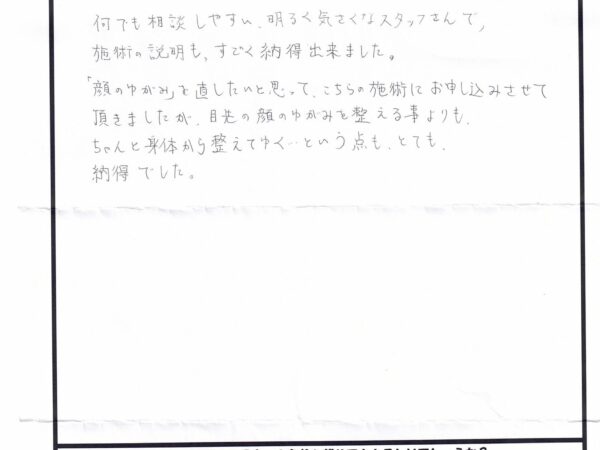 何でも相談しやすい、明るく気さくなスタッフさんで、
施術の説明も、すごく納得出来ました。
「顔のゆがみ」を直したいと思って、こちらの施術にお申し込みさせて
頂きましたが、目先の顔のゆがみを整える事よりも、
ちゃんと身体から整えてゆく…という点も、とても、
納得でした。